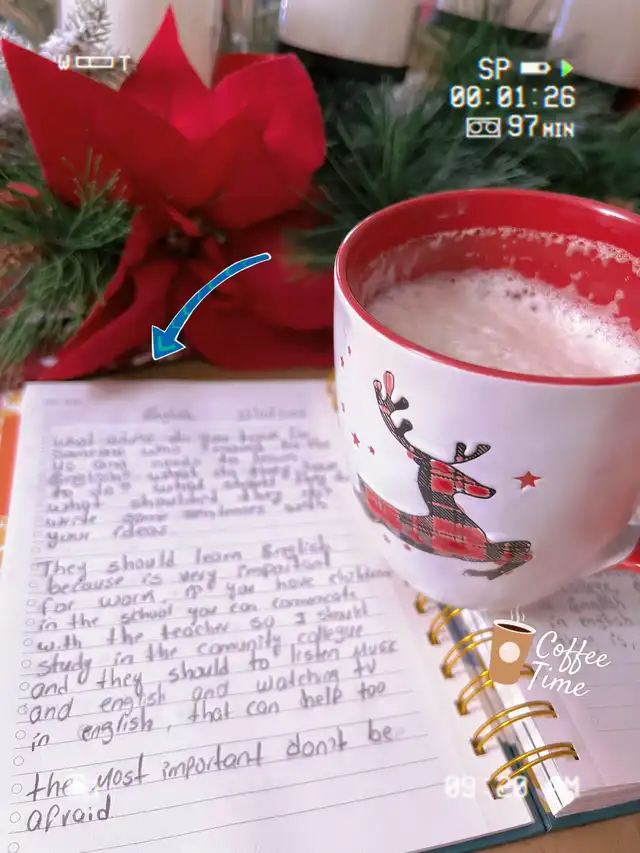 W T
SP
00:01:26
97 MIN
English
what advice do you have for
someone who moved to the
US and needs to learn
English? what do they have
to do? what should they do?
what shouldn't they do?
write some sentences with
your ideas.
They should learn English
because is very important
for worn, if you have children
in the school you can comunicate
with the teacher so I should
study in the comunity collegue
and they should to listen Music
and english and watching tv
in english, that can help too
the most important don't be
afraid.
english
in english
Coffee
Time
09:20 AM